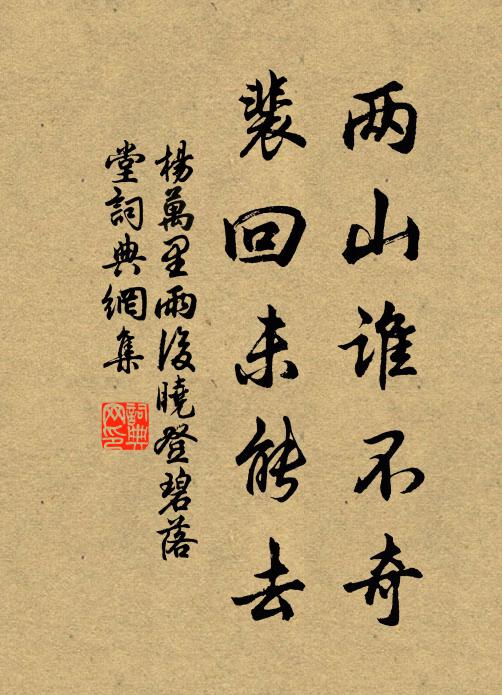 两山谁不奇
裴回未能去
楊萬里雨後曉登碧落
堂詞典網集
詞典
网印